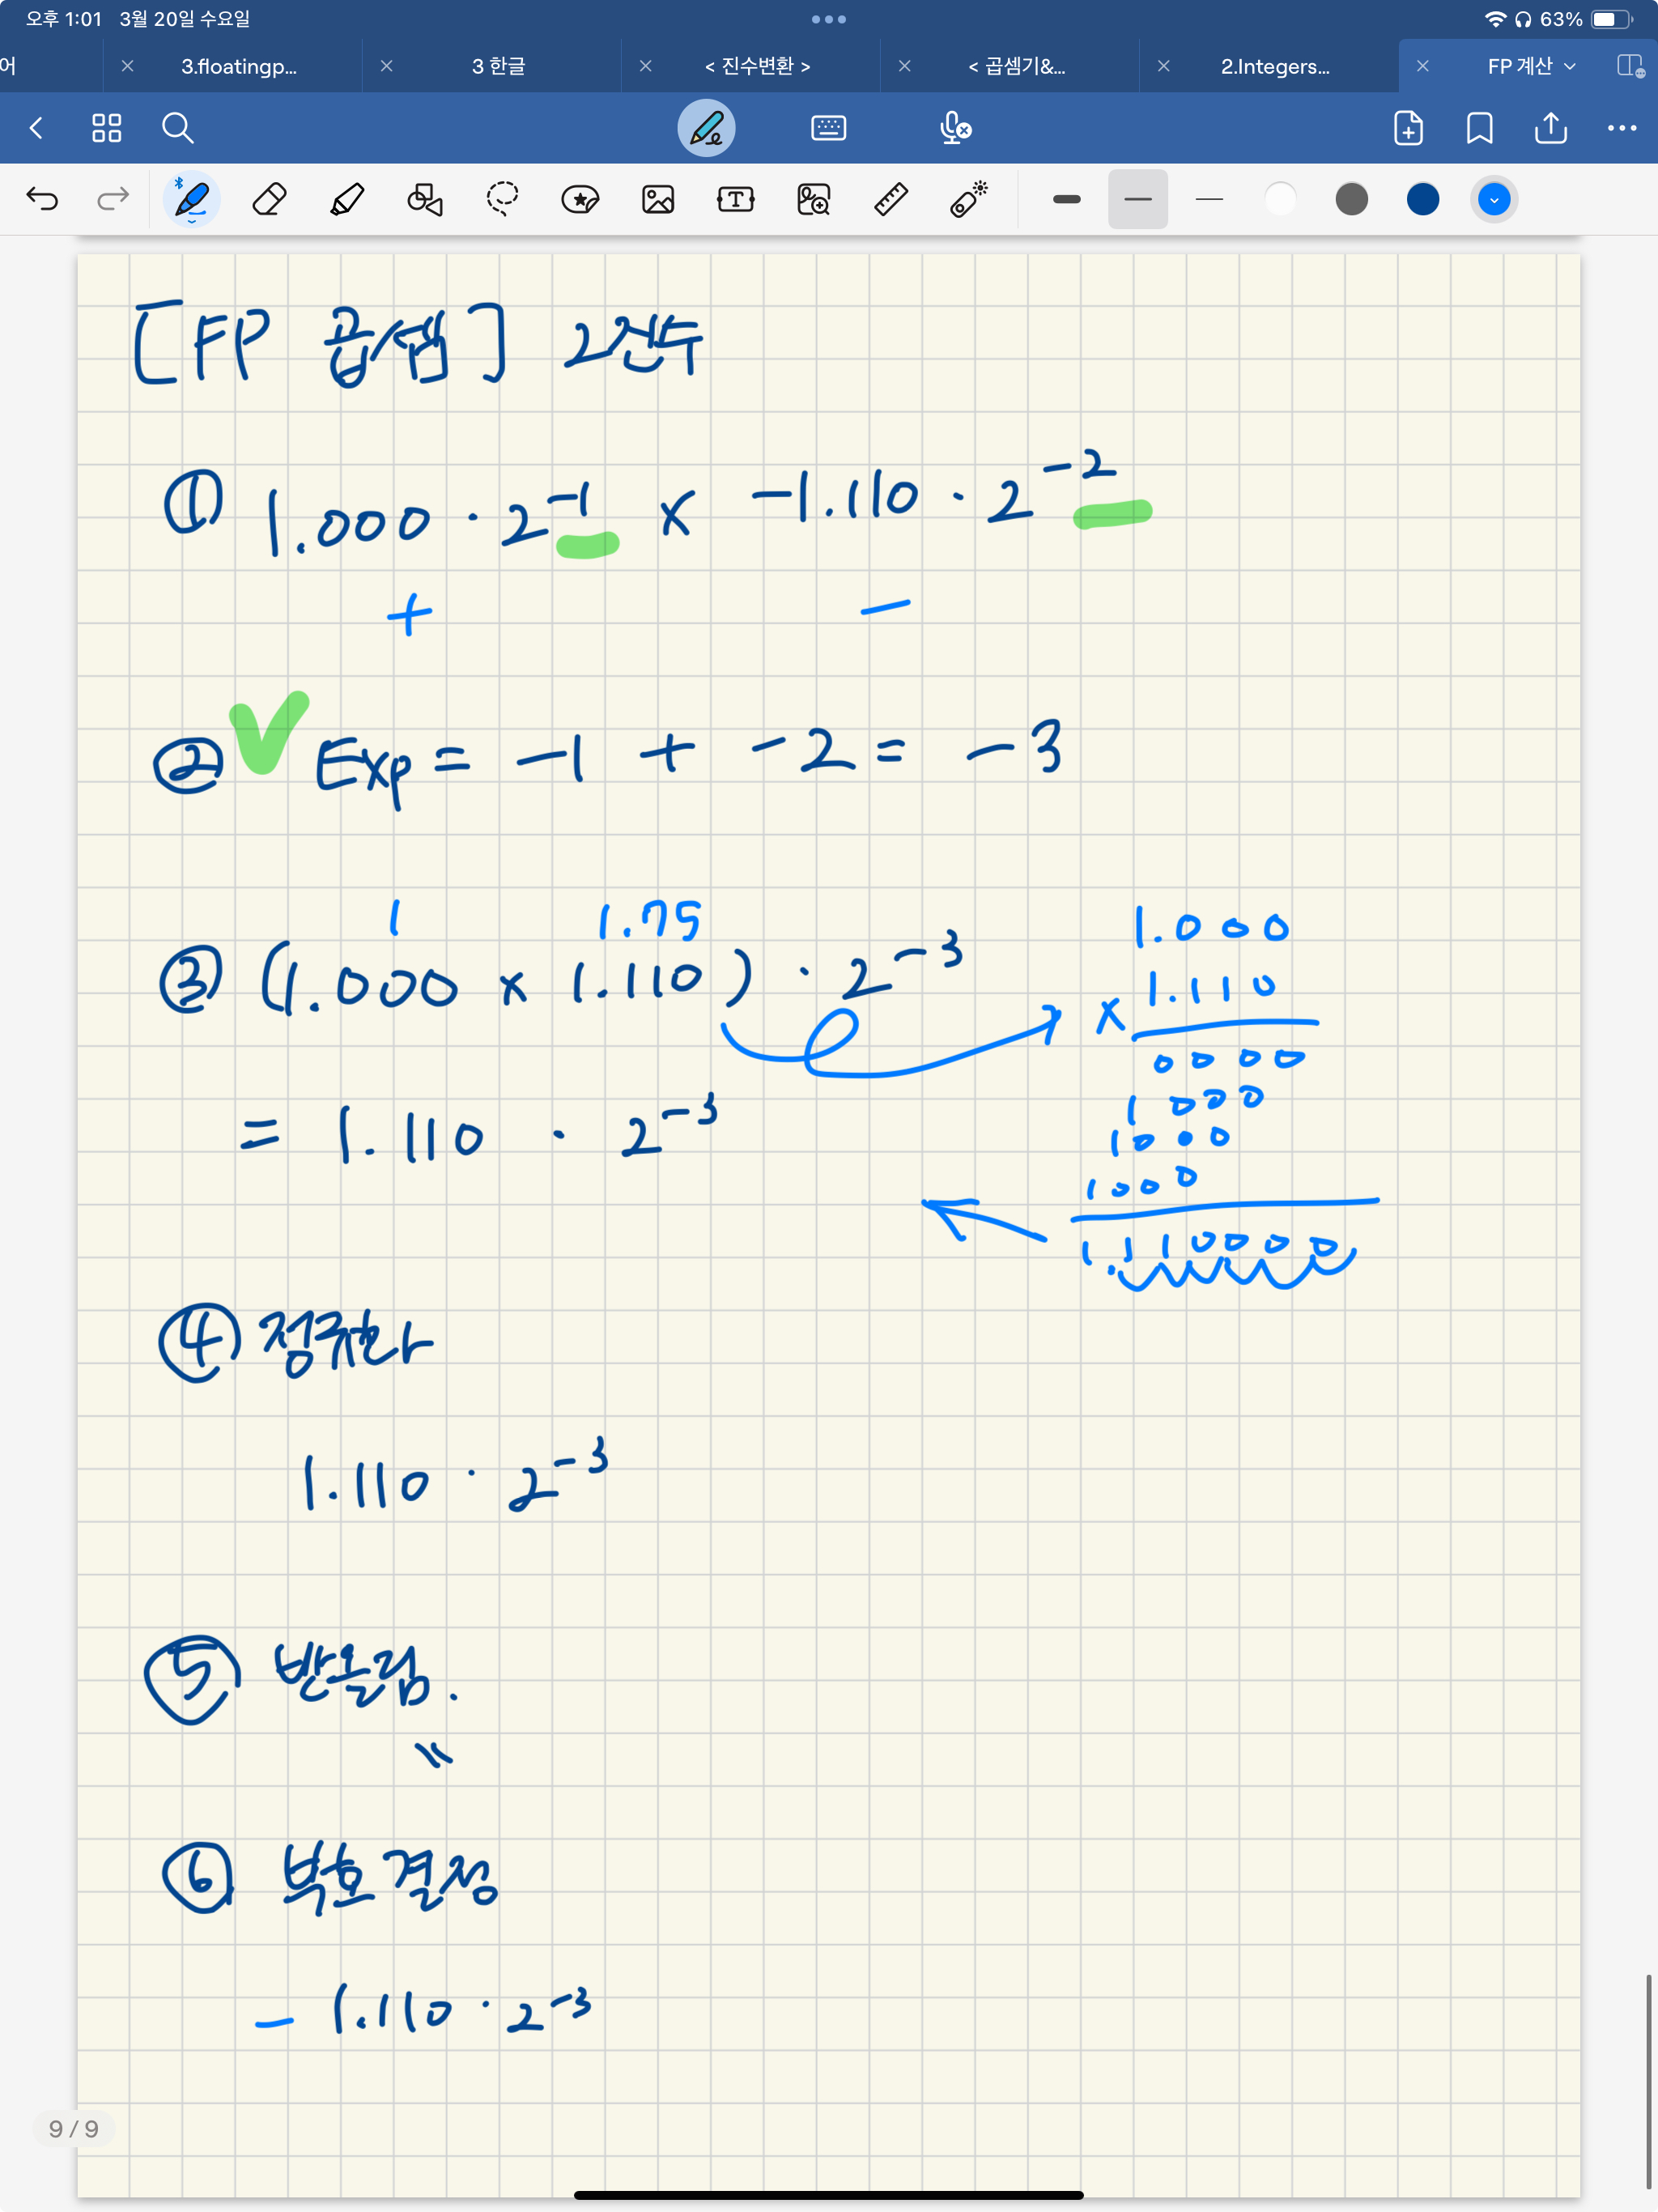 오후 1:01 3월 20일 수요일
63%
어
3.floatingp...
3 한글
< 진수변환 >
< 곱셈기&...
2.Integers...
FP 계산
[FP 곱셈] 2진수
① 1.000 · 2⁻¹ × -1.110 · 2⁻²
+ −
② Exp = -1 + -2 = -3
1 1.75
③ (1.000 × 1.110) · 2⁻³
= 1.110 · 2⁻³
1.000
× 1.110
0000
1000
1000
1000
1.110000
④ 정규화
1.110 · 2⁻³
⑤ 반올림.
〃
⑥ 부호 결정
− 1.110 · 2⁻³
9 / 9